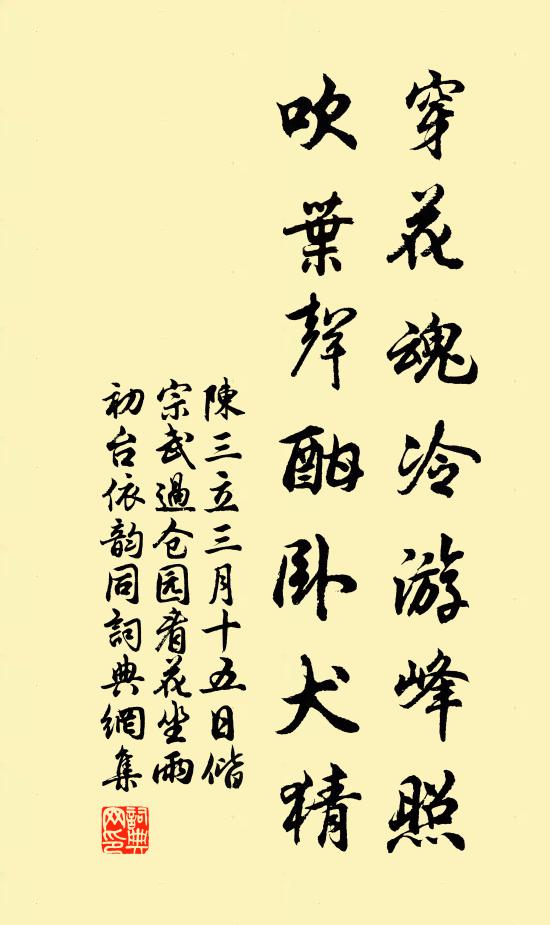 穿花魂冷游峰照
吹葉聲酣卧犬猜
陳三立三月十五日偕
宗武過仓园看花坐雨
初台依韵同詞典網集
詞典
网印